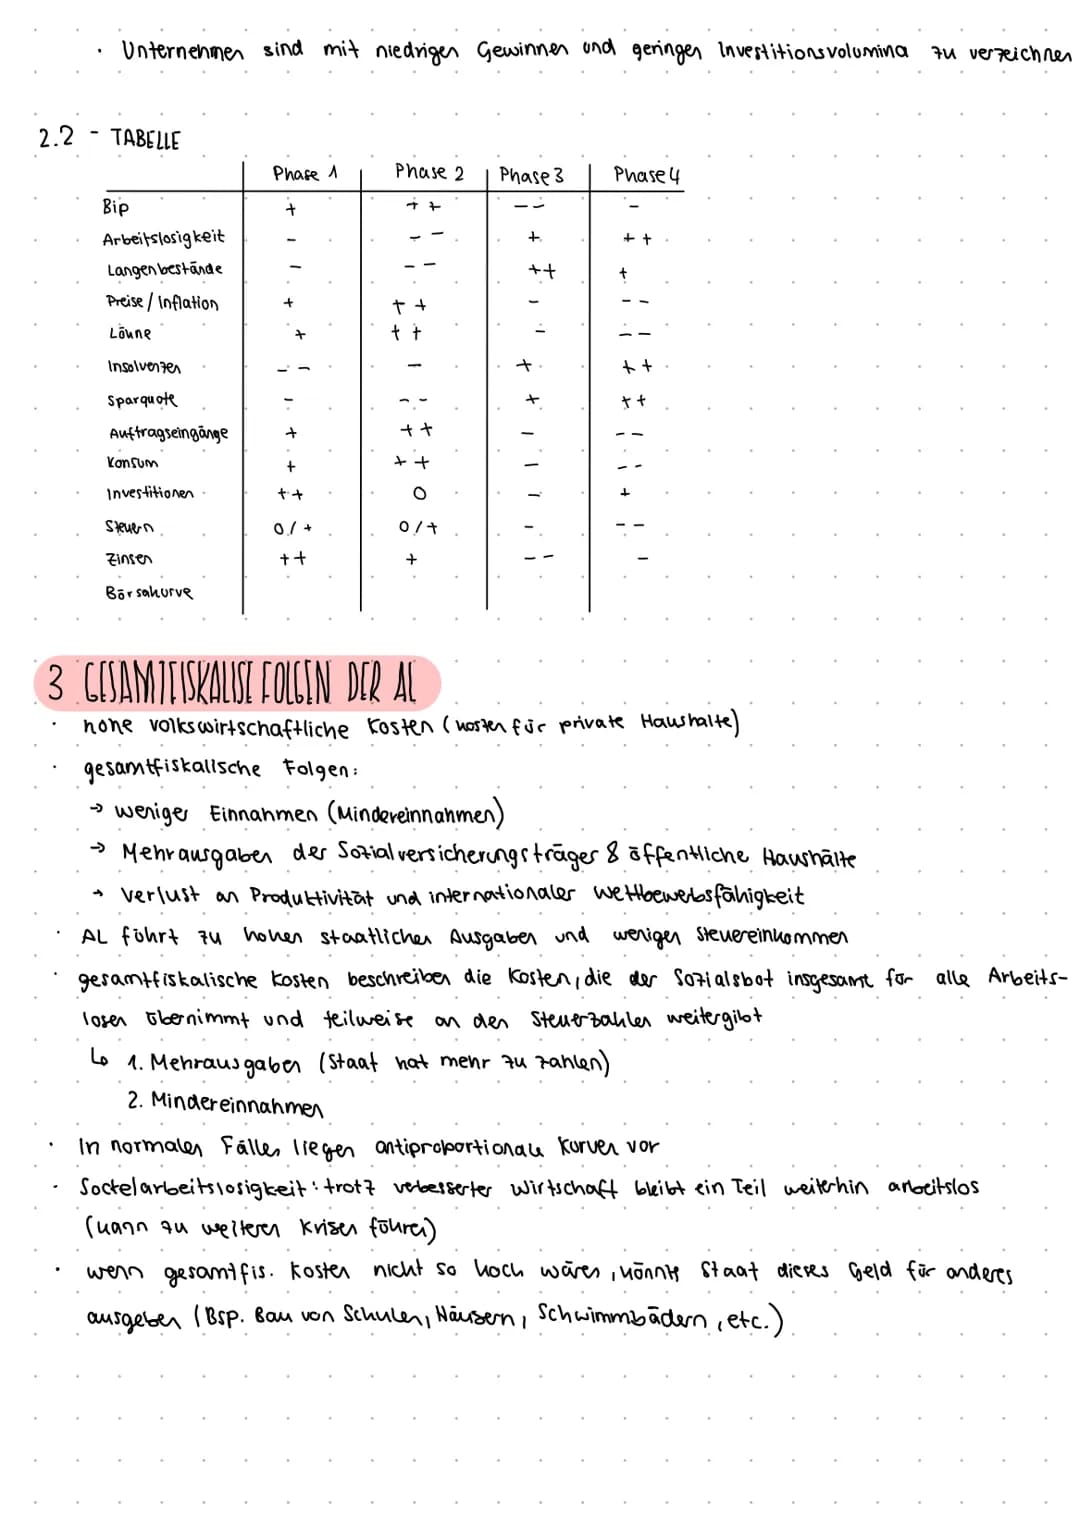 · Unternehmen sind mit niedrigen Gewinnen und geringen Investitionsvolumina zu verzeichnen
2.2 - TABELLE
Phase 1 Phase 2 Phase 3 Phase 4
Bip + ++ -- -
Arbeitslosigkeit - -- + ++
Langenbestände - -- ++ +
Preise / Inflation + ++ - --
Löhne + ++ - --
Insolvenzen -- - + ++
Sparquote - -- + ++
Auftragseingänge + ++ - --
Konsum + ++ - --
Investitionen ++ 0 - +
Steuern 0/+ 0/+ - --
Zinsen ++ + -- -
Börsakurve
3 GESAMTFISKALISE FOLGEN DER AL
· hohe volkswirtschaftliche Kosten (kosten für private Haushalte)
· gesamtfiskalische Folgen:
→ weniger Einnahmen (Mindereinnahmen)
→ Mehrausgaben der Sozialversicherungsträger & öffentliche Haushälte
→ Verlust an Produktivität und internationaler Wettbewerbsfähigkeit
· AL führt zu hohen staatlichen Ausgaben und weniger Steuereinkommen
· gesamtfiskalische Kosten beschreiben die Kosten, die der Sozialsbat insgesamt für alle Arbeits-
losen übernimmt und teilweise an den Steuerzahler weitergibt
↳ 1. Mehrausgaben (Staat hat mehr zu zahlen)
2. Mindereinnahmen
· In normalen Fällen liegen antiproportionale Kurven vor
· Sockelarbeitslosigkeit: trotz verbesserter Wirtschaft bleibt ein Teil weiterhin arbeitslos
(kann zu weiteren Krisen führen)
· wenn gesamtfis. Kosten nicht so hoch wären, könnte Staat dieses Geld für anderes
ausgeben (Bsp. Bau von Schulen, Häusern, Schwimmbädern, etc.)